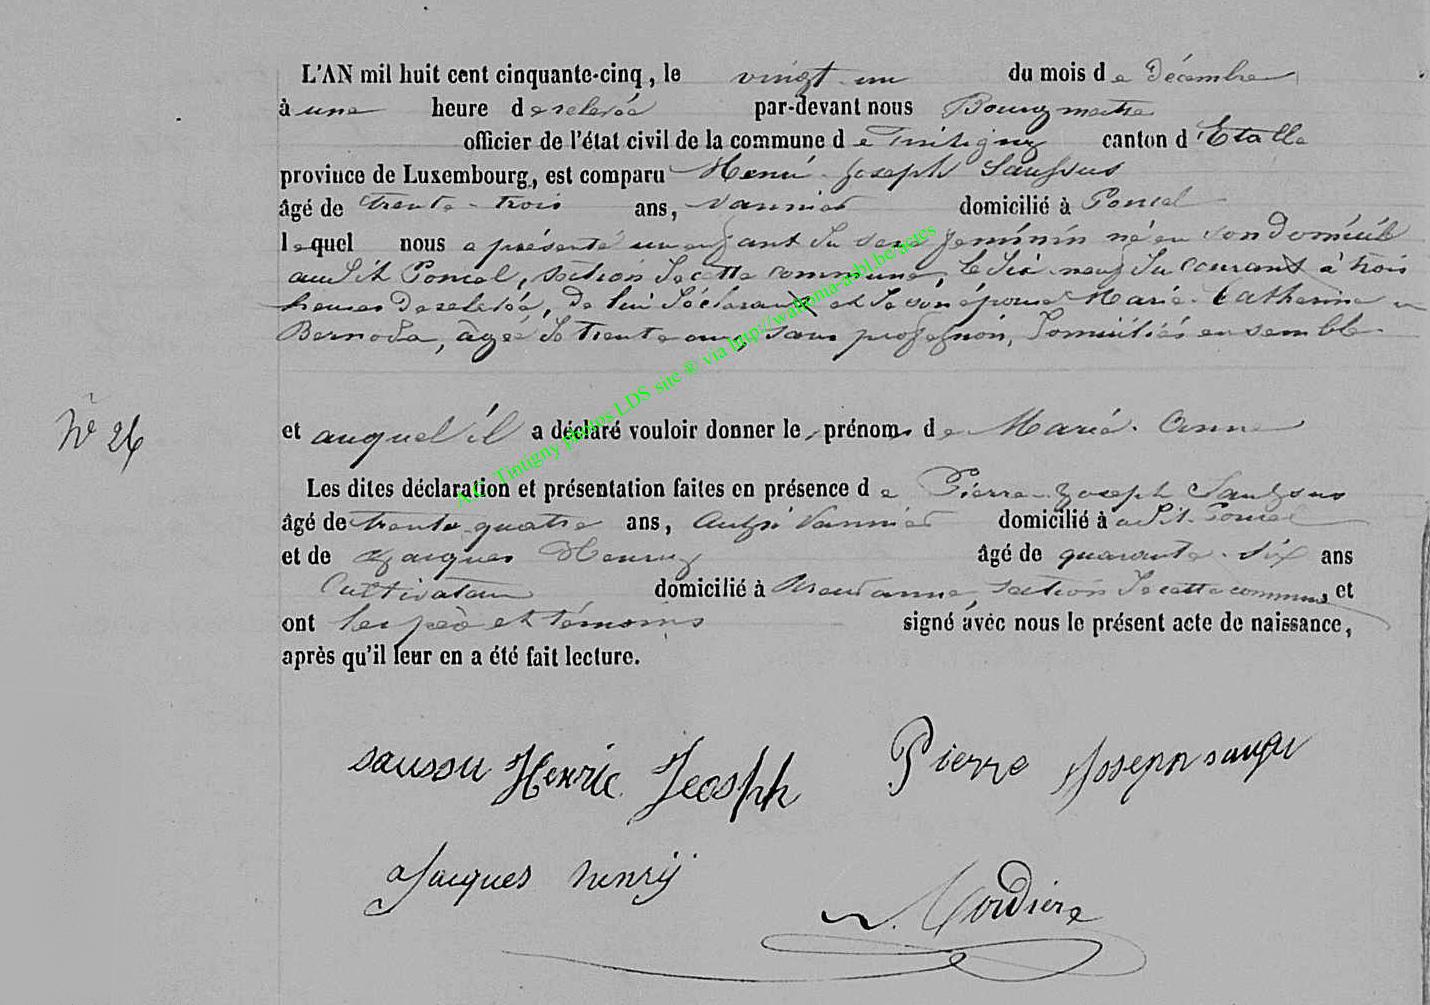 L'AN mil huit cent cinquante-cinq, le vingt un du mois de Décembre
à une heure de relevée par-devant nous Bourgmestre
officier de l'état civil de la commune de Tintigny canton d'Etalle
province de Luxembourg, est comparu Henri Joseph Saussus
âgé de trente-trois ans, vannier domicilié à Poncel
lequel nous a présenté un enfant du sexe féminin né en son domicile
audit Poncel, section de cette commune, le dix-neuf du courant à trois
heures de relevée, de lui déclarant et de son épouse Marie-Catherine
Bernoda, âgée de trente ans, sans profession, domiciliés ensemble
N° 26
et auquel il a déclaré vouloir donner le prénoms de Marie-Anne
Les dites déclaration et présentation faites en présence de Pierre-Joseph Saussus
âgé de trente-quatre ans, aussi vannier domicilié à dit Poncel
et de Jacques Henry âgé de quarante-six ans
Cultivateur domicilié à section de cette commune, et
ont les père et témoins signé avec nous le présent acte de naissance,
après qu'il leur en a été fait lecture.
saussu Henric Jeosph Pierre Joseph
Jacques henrÿ
A.C. Tintigny photos LDS site ® via http://walloma-asbl.be/actes